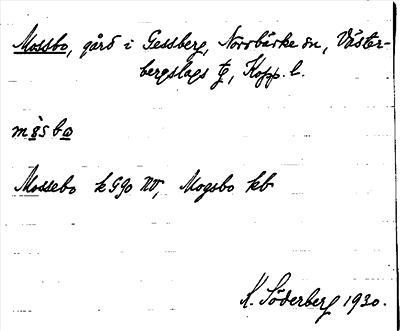 Mossbo, gård i Gessberg, Norrbärke sn, Väster-
bergslags tg, Kopp. l.
Mossebo k 590 NV, Mogsbo kb
K. Söderberg 1930.